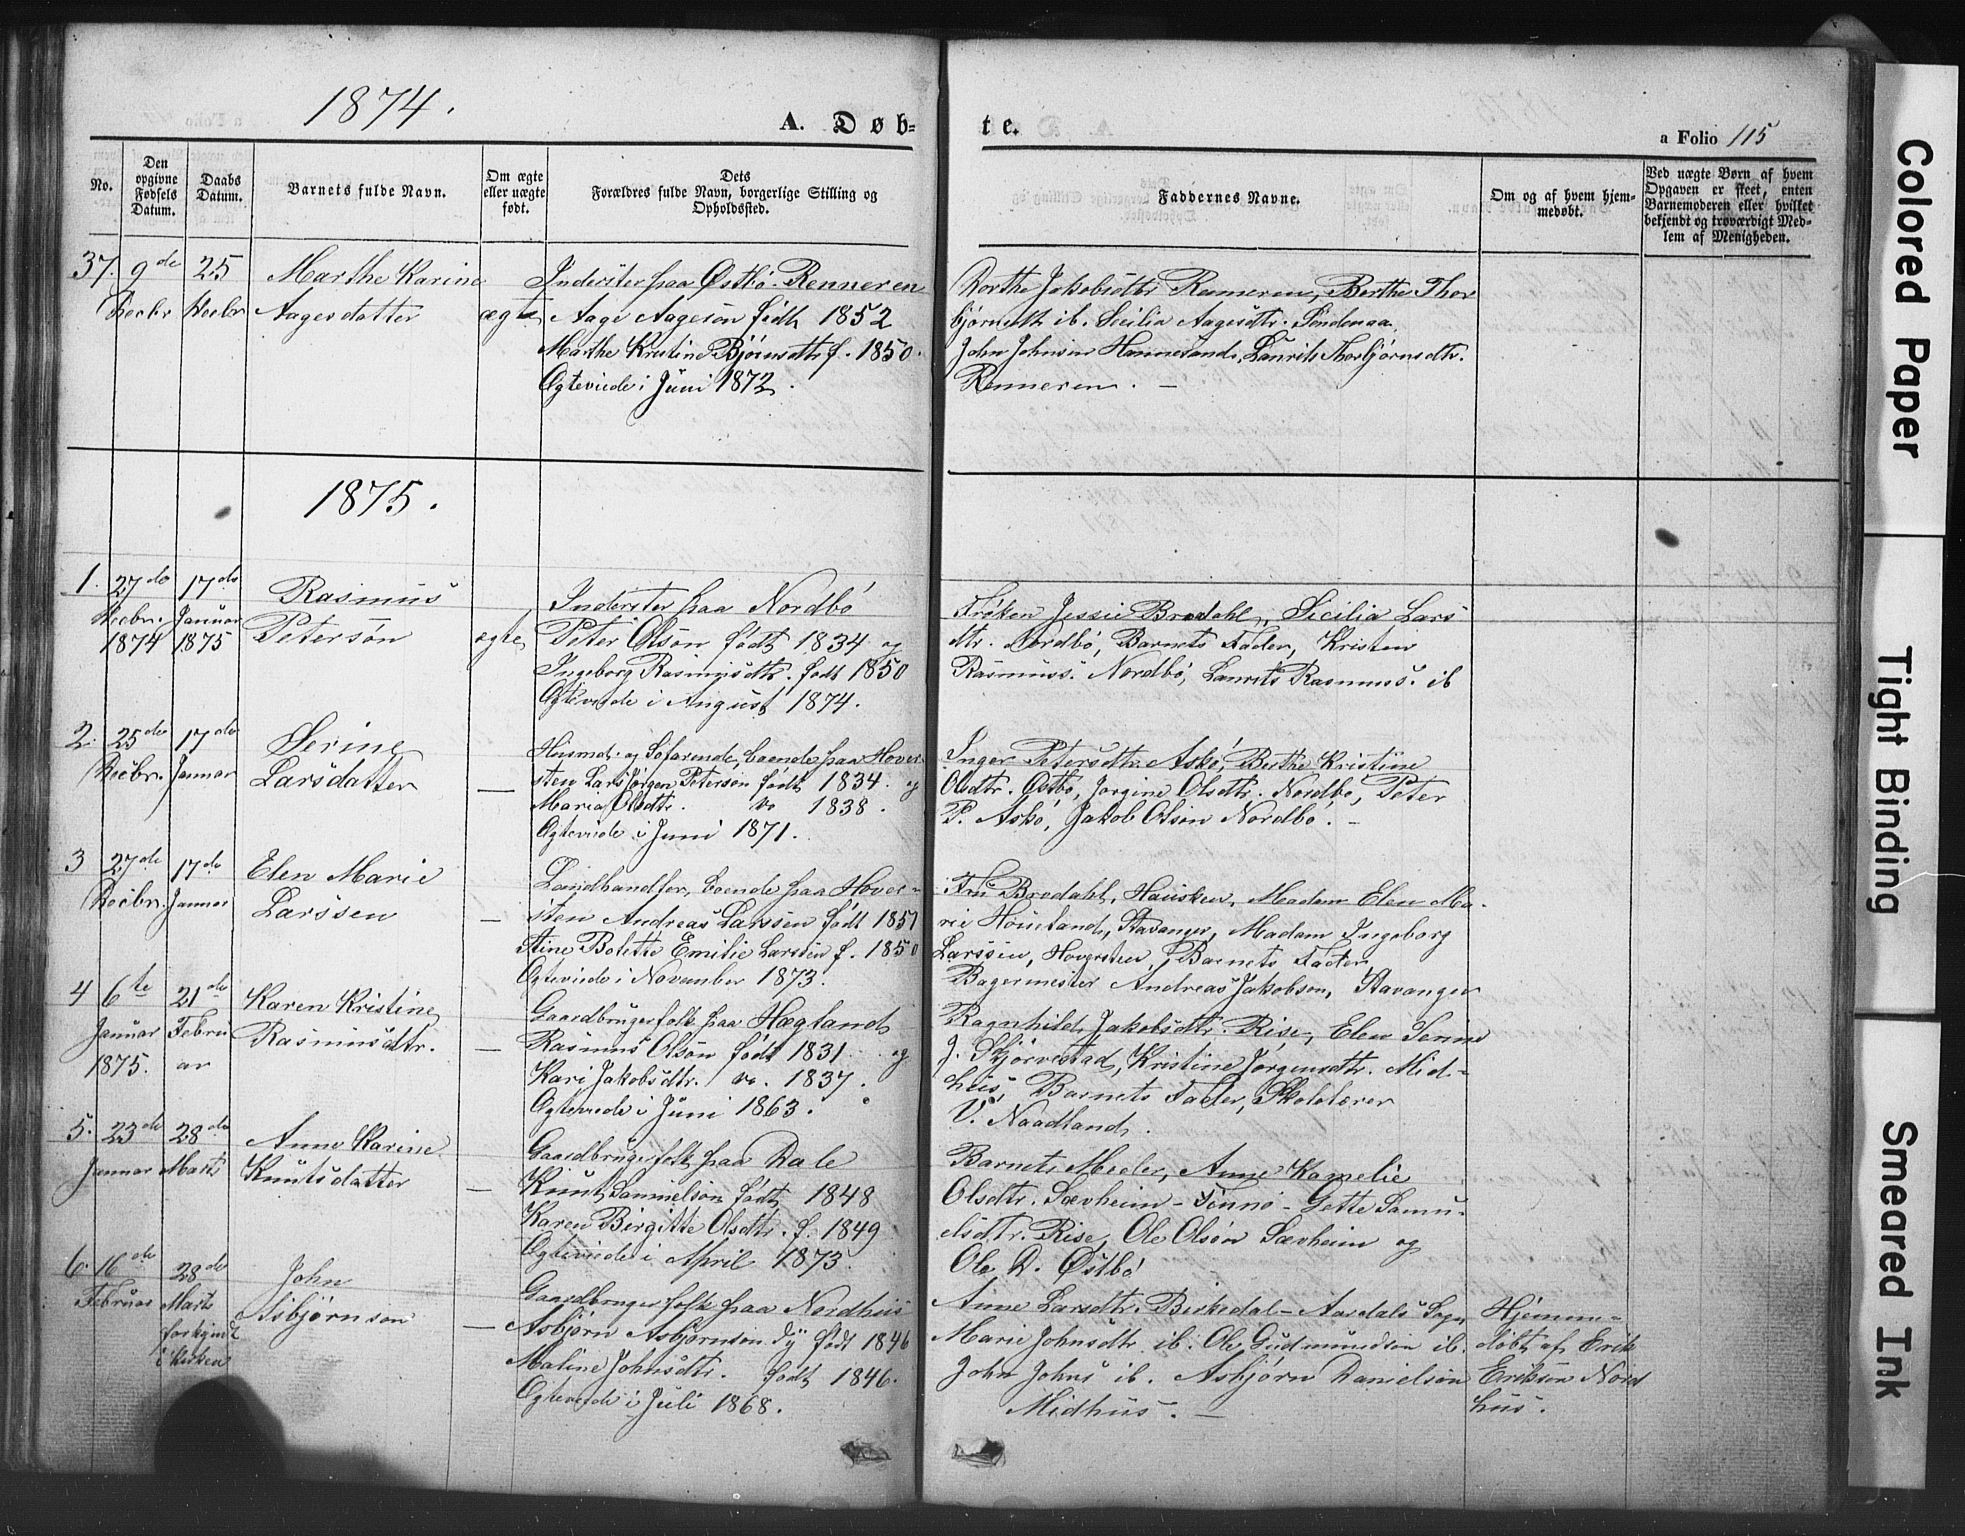 1874.
A. Døb=
te.
a Folio 115
No.
Den opgivne Fødsels Datum.
Daabs Datum.
Barnets fulde Navn.
Om ægte eller uægte født.
Dets Forældres fulde Navn, borgerlige Stilling og Opholdssted.
Faddernes Navne.
Om og af hvem hjemmedøbt.
Ved uægte Børn af hvem Opgaven er skeet, enten Barnemoderen eller hvilket bekjendt og troværdigt Medlem af Menigheden.
37. 9de Decbr
25 Decbr
Marthe Karine
Aagesdatter
ægte
Inderster paa Østbø. Renneren
Aage Aageson født 1852
Marthe Kristine Bjørnsdtr f. 1850.
Ægteviede i Juni 1872.
Dorthe Jakobsdtr Renneren, Berthe Thor
bjørnsdtr ib. Sicilia Aagesdtr. Söndenaa.
John Johnson Hannesand, Laurits Thorbjørnsdtr.
Renneren. —
1875.
1. 27de Decbr. 1874
17de Januar 1875
Rasmus
Petersøn
ægte
Inderster paa Nordbö
Peter Olsøn født 1834 og
Ingeborg Rasmusdtr. født 1850
Ægteviede i August 1874.
Frøken Jessie Brodahl, Sicilia Lars
dtr. Nordbö, Barnets Fader, Kristen
Rasmuss. Nordbö, Laurits Rasmuss. ib
2. 25de Decbr.
17de Januar
Serine
Larsdatter
—
Husmd. og Søfarende, boende paa Hover
sten Lars Jørgen Peterson født 1834. og
Maria Olsdtr. do 1838.
Ægteviede i Juni 1871.
Inger Petersdtr. Askö, Berthe Kristine
Olsdtr. Østbö, Jorgine Olsdtr. Nordbö, Peter
P. Askö, Jakob Olsön Nordbö. —
3 27de Decbr.
17de Januar
Elen Marie
Larssen
—
Landhandler, boende paa Hover-
sten Andreas Larssen født 1851
Stine Bolette Emilie Larssen f. 1850
Ægteviede i November 1873.
Fru Brodahl, Hausken, Madam Elen Ma-
rie Houeland, Stavanger, Madam Ingeborg
Larssen, Hoversten, Barnets Fader,
Bagermester Andreas Jakobsen, Stavanger
4 6te Januar 1875.
21de Februar
Karen Kristine
Rasmusdtr.
—
Gaardbrugerfolk paa Hægland
Rasmus Olsøn født 1831 og
Kari Jakobsdtr. do. 1837.
Ægteviede i Juni 1863.
Ragnhild Jakobsdtr. Rise, Elen Serine
J. Skjørvestad, Kristine Jørgensdtr. Mid-
hus, Barnets Fader, Skolelærer
V. Naadland.
5. 23de Januar
28de Marts
Anne Karine
Knutsdatter
—
Gaardbrugerfolk paa Dale
Knut Samuelsøn født 1848
Karen Birgitte Olsdtr. f. 1849
Ægteviede i April 1873.
Barnets Moder, Anne Kornelie
Olsdtr. Sævheim - Finnö - Gette Samu-
elsdtr. Rise, Ole Olsøn Sævheim og
Ole D. Østbö
6. 16de Februar
28de Marts
forkyndt
i Kirken
John
Asbjørnson
—
Gaardbrugerfolk paa Nordhus
Asbjørn Asbjørnson Dy født 1846
Maline Johnsdtr. født 1846.
Ægteviede i Juli 1868.
Anne Larsdtr. Birkedal - Aardals Sogn
Marie Johnsdtr ib. Ole Gudmundson ib.
John Johns ib. Asbjørn Danielson
Midhus. —
Hjemme-
døbt af Erik
Erikson Nord
hus.
Colored Paper
Tight Binding
Smeared Ink